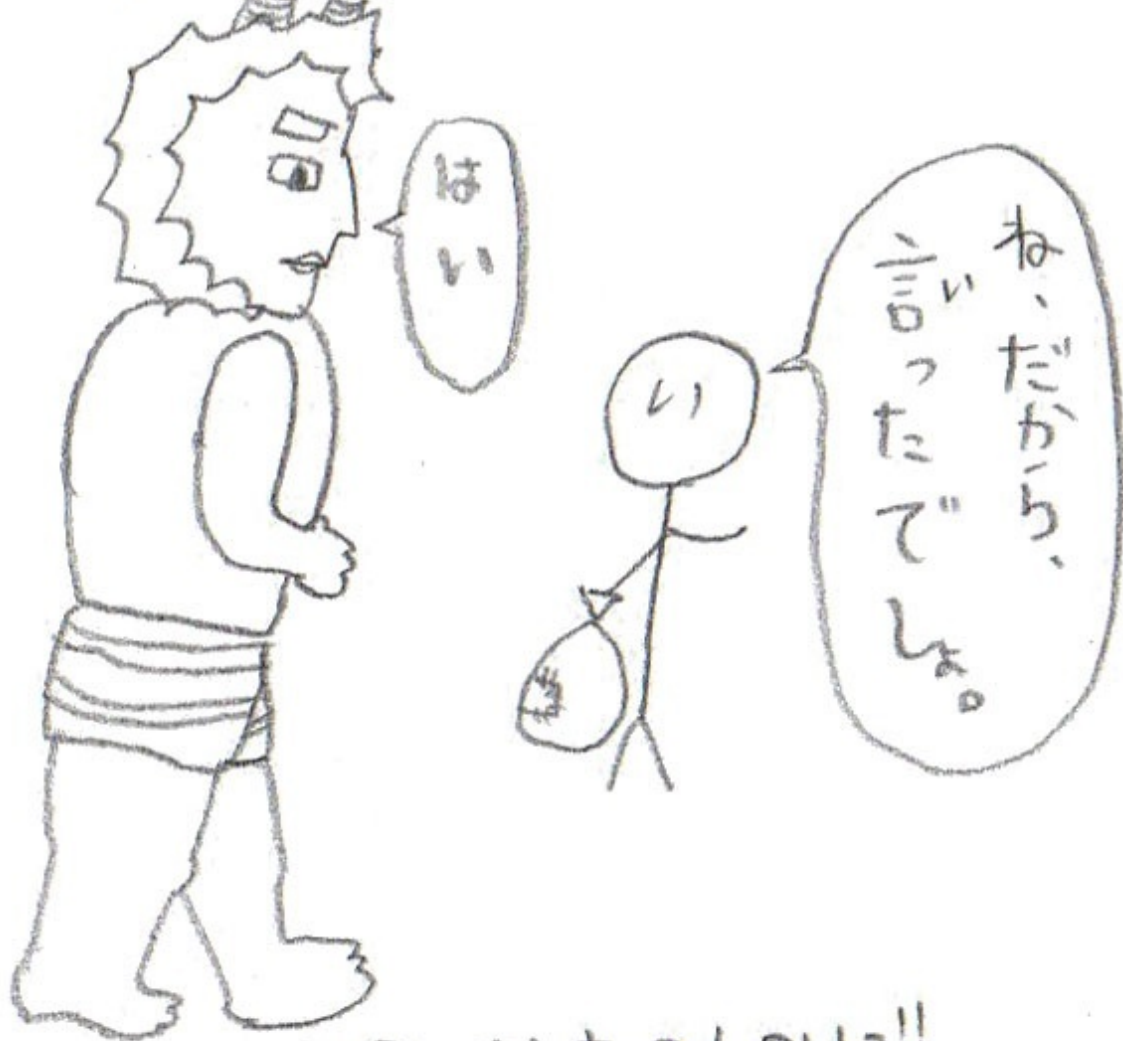 はい
ね、だから、
言ったでしょ。
い
い